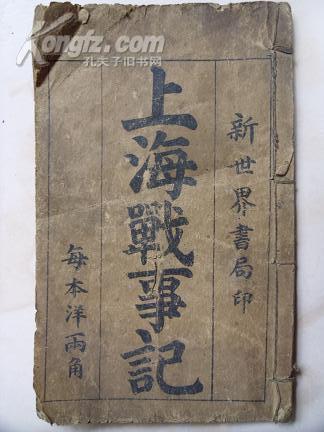 Kongfz.com
孔夫子旧书网
新世界書局印
上海戰事記
每本洋兩角